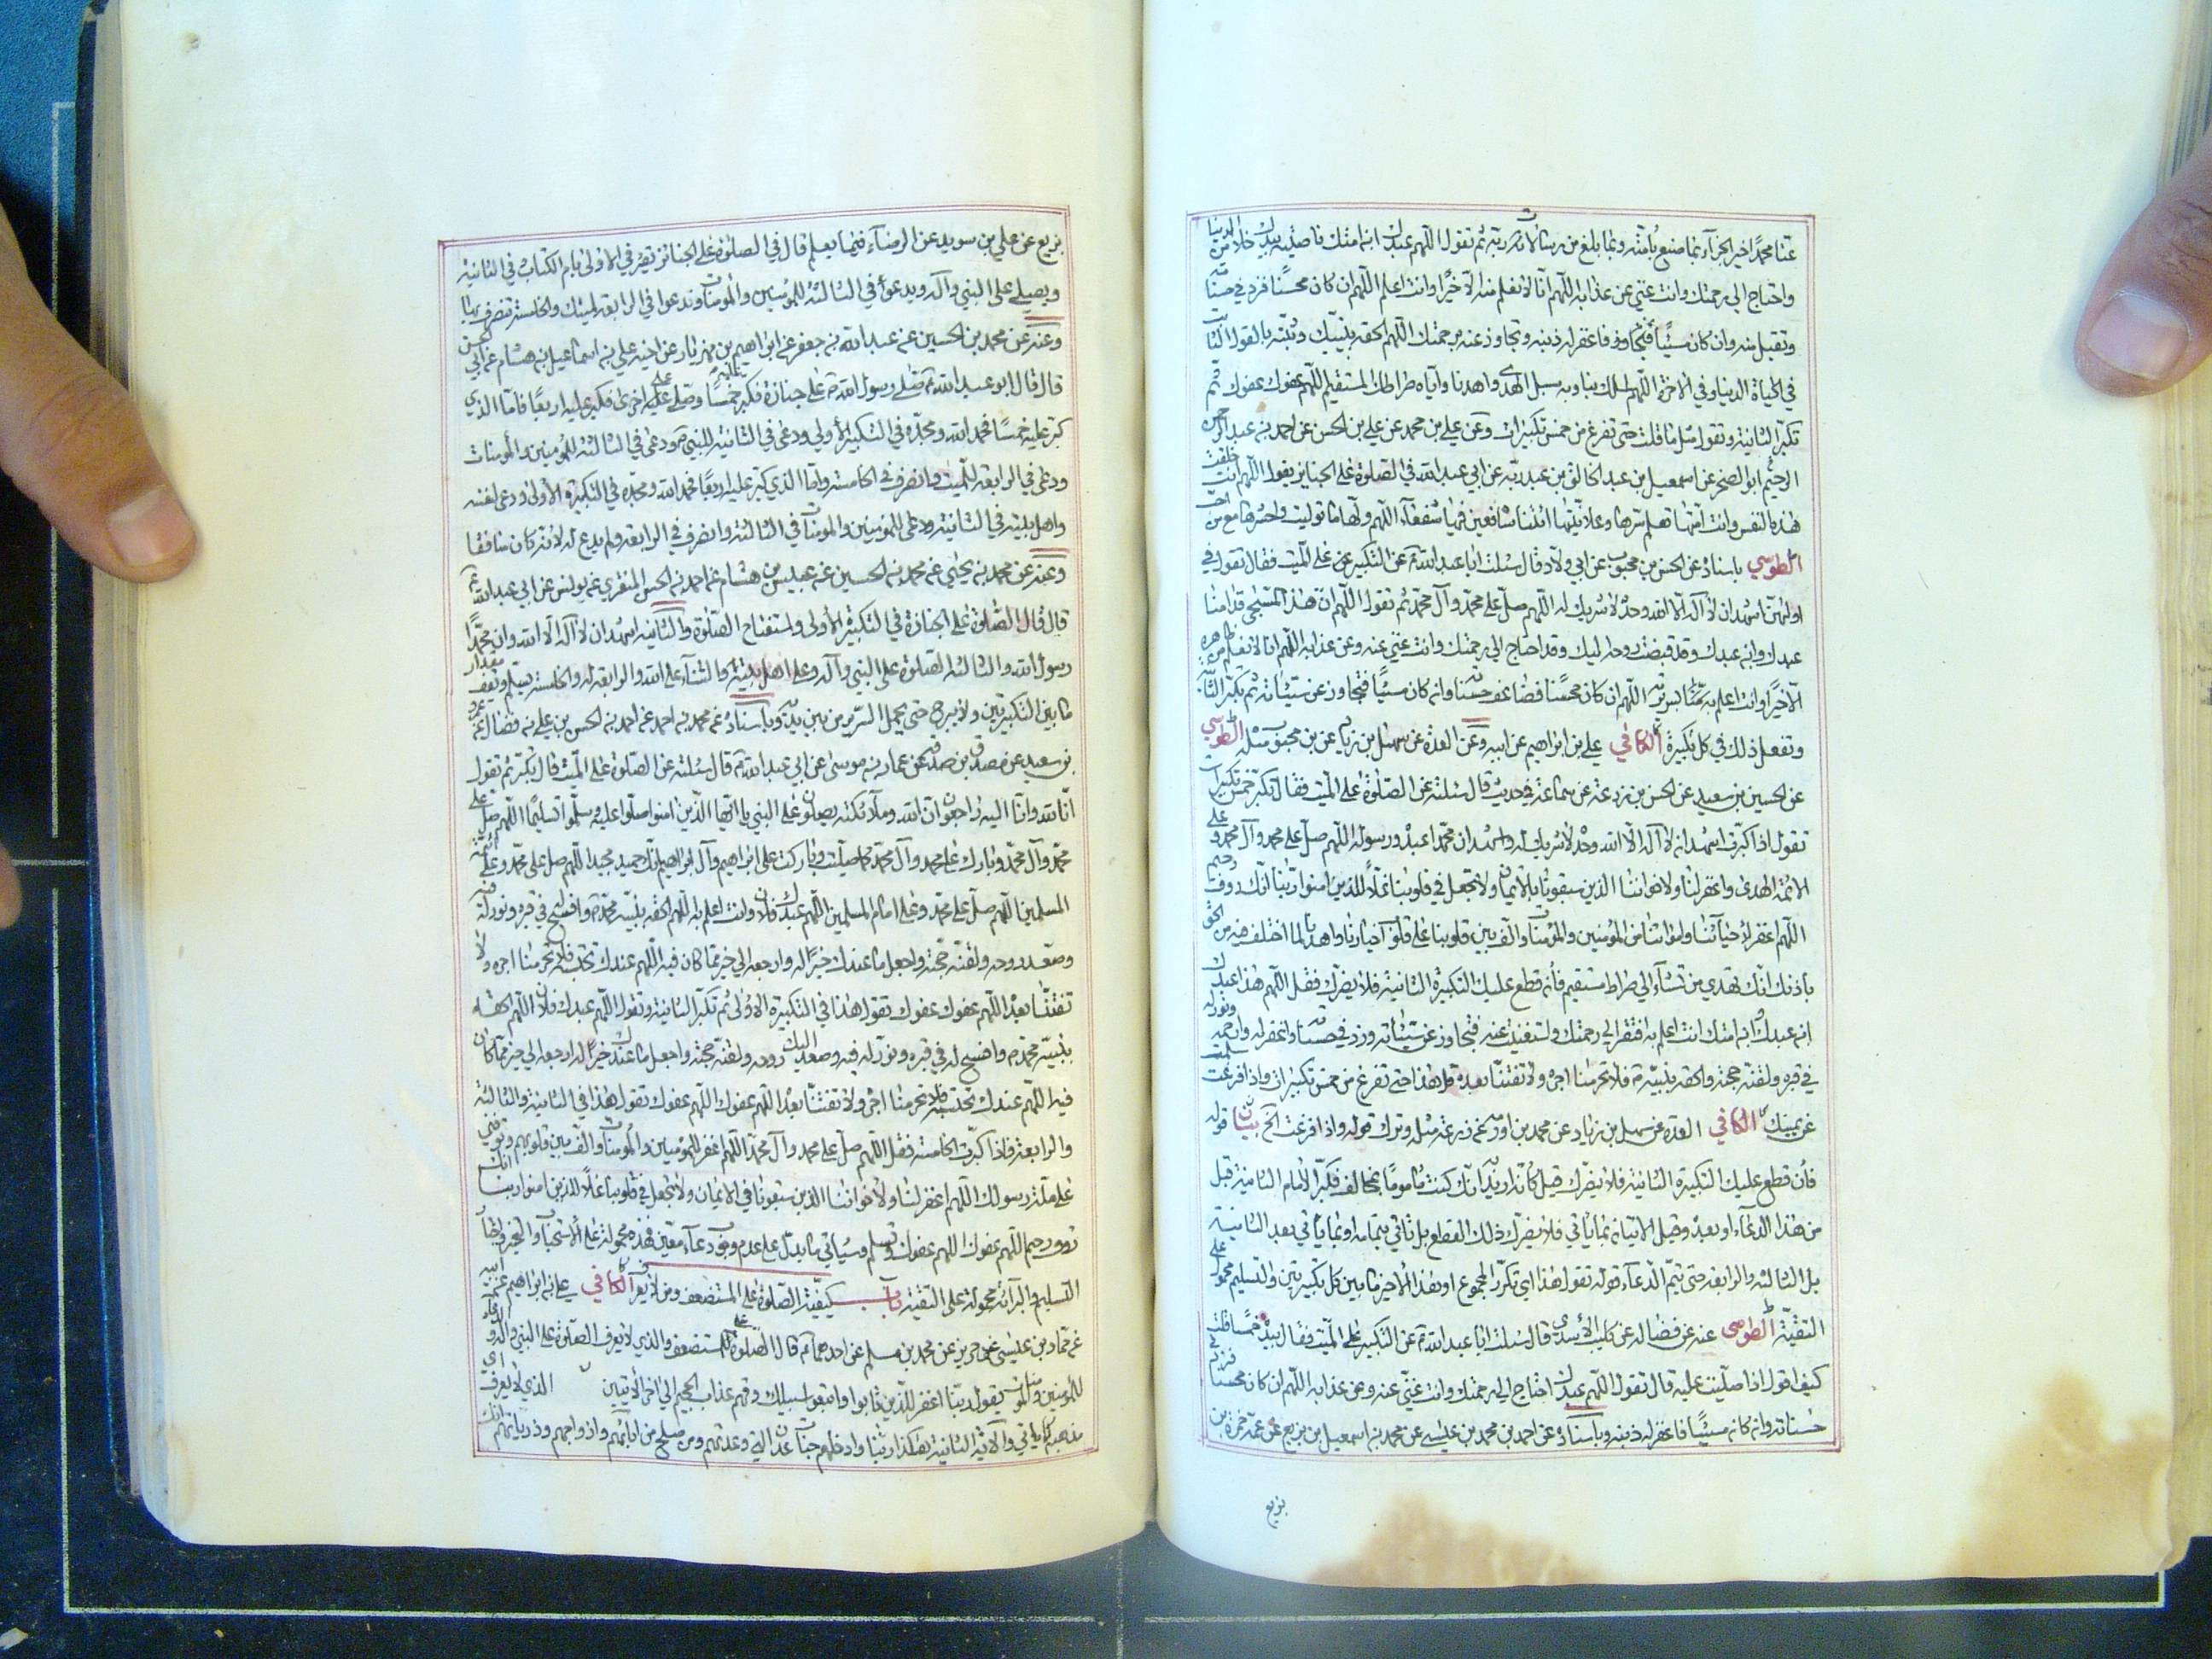 عنا محمدا خير الجزاء بما صنع بامته وبما بلغ من رسالات ربه ثم تقول اللهم عبدك ابن امتك ناصيته بيدك خلا من الدنيا
واحتاج الى رحمتك وانت غني عن عذابه اللهم انا لا نعلم منه الا خيرا وانت اعلم اللهم ان كان محسنا فزد في حسناته
وتقبل منه وان كان مسيئا فاغفر له ذنبه وتجاوز عنه برحمتك اللهم الحقه بنبيك وثبته بالقول الثابت
في الحياة الدنيا وفي الاخرة اللهم اسلك بنا وبه سبل الهدى واهدنا واياه صراطك المستقيم اللهم عفوك عفوك ثم
تكبر الثانية وتقول مثل ما قلت حتى تفرغ من خمس تكبيرات وعن علي بن محمد عن علي بن الحسن عن احمد بن عبد الرحيم
ابو الصخر عن اسمعيل بن عبد الخالق بن عبد ربه عن ابي عبد الله في الصلوة على الجنايز يقول اللهم انت خلقت
هذه النفس وانت امتها تعلم سرها وعلانيتها اتيناك شافعين فيها شفعاء اللهم ولها ما تولت واحشرها مع من احبت
الطوسي باسناده عن الحسن بن محبوب عن ابي ولاد قال سئلت ابا عبد الله عن التكبير على الميت فقال تقول في
اولهن اشهد ان لا اله الا الله وحده لا شريك له اللهم صل على محمد وآل محمد ثم تقول اللهم ان هذا المسجى قدامنا
عبدك وابن عبدك وقد قبضت روحه اليك وقد احتاج الى رحمتك وانت غني عن عذابه اللهم انا لا نعلم من ظاهره
الا خيرا وانت اعلم بسريرته اللهم ان كان محسنا فضاعف حسناته وان كان مسيئا فتجاوز عن سيئاته ثم تكبر الثانية
وتفعل ذلك في كل تكبيرة الكافي علي بن ابراهيم عن ابيه وعن العدة عن سهل بن زياد عن بن محبوب مثله الطوسي
عن الحسين بن سعيد عن الحسن عن زرعة عن سماعة في حديث قال سئلته عن الصلوة على الميت فقال تكبر خمس تكبيرات
تقول اذا كبرت اشهد ان لا اله الا الله وحده لا شريك له واشهد ان محمدا عبده ورسوله اللهم صل على محمد وآل محمد وعلى
الائمة الهدى واغفر لنا ولاخواننا الذين سبقونا بالايمان ولا تجعل في قلوبنا غلا للذين امنوا ربنا انك رؤف رحيم
اللهم اغفر لاحيائنا وامواتنا من المؤمنين والمؤمنات والف بين قلوبنا على قلوب اخيارنا واهدنا لما اختلف فيه من الحق
باذنك انك تهدي من تشاء الى صراط مستقيم فان قطع عليك التكبيرة الثانية فلا يضرك فقل اللهم هذا عبدك
ابن عبدك ابن امتك انت اعلم به افتقر الى رحمتك واستغنيت عنه فتجاوز عن سيئاته وزد في حسناته واغفر له وارحمه ونور له
في قبره ولقنه حجته والحقه بنبيه ولا تحرمنا اجره ولا تفتنا بعده قل هذا حتى تفرغ من خمس تكبيرات واذا فرغت سلمت
عن يمينك الكافي العدة عن سهل بن زياد عن محمد بن اورمة عن زرعة مثله وترك قوله واذا فرغت الخ بيان قوله
فان قطع عليك التكبيرة الثانية فلا يضرك قيل كانه اريد انك كنت ماموما بمخالف فكبر الامام الثانية قبل
من هذا الدعاء او بعده وقبل الاتيان بما ياتي فلا يضرك ذلك القطع بل تاتي بتمامه او بما ياتي بعد الثانية
بل الثالثة والرابعة حتى تتم الدعاء قوله تقول هذا اي تكرر المجموع او هذا الاخير ما بين كل تكبيرتين والتسليم محمول على
التقية الطوسي عنه عن فضالة عن كليب الاسدي قال سئلت ابا عبد الله عن التكبير على الميت فقال بيده خمسا قلت
كيف اقول اذا صليت عليه قال تقول اللهم عبدك احتاج الى رحمتك وانت غني عن عذابه اللهم ان كان محسنا فزد في
حسناته وان كان مسيئا فاغفر له ذنبه وباسناده عن احمد بن محمد بن عيسى عن محمد بن اسمعيل بن بزيع عن عمه حمزة بن
بزيع
بزيع عن علي بن سويد عن الرضا فيما يعلم قال في الصلوة على الجنائز تقرء في الاولى بام الكتاب وفي الثانية
ويصلي على النبي وآله ويدعو في الثالثة للمؤمنين والمؤمنات وتدعوا في الرابعة لميتك والخامسة تنصرف بها
وعنه عن محمد بن الحسين عن عبد الله بن جعفر عن ابراهيم بن مهزيار عن اخيه علي بن اسماعيل بن هشام عن ابي الحسن
قال قال ابو عبد الله صلى رسول الله على جنازة فكبر عليه خمسا وصلى على اخرى فكبر عليه اربعا فاما الذي
كبر عليه خمسا فحمد الله ومجده في التكبيرة الاولى ودعى في الثانية للنبي ودعى في الثالثة للمؤمنين والمؤمنات
ودعى في الرابعة للميت وانصرف في الخامسة واما الذي كبر عليه اربعا فحمد الله ومجده في التكبيرة الاولى ودعى لنفسه
واهل بيته في الثانية ودعى للمؤمنين والمؤمنات في الثالثة وانصرف في الرابعة ولم يدع له لانه كان منافقا
وعنه عن محمد بن يحيى عن محمد بن الحسين عن عبيس بن هشام عن احمد بن الحسن المنقري عن يونس عن ابي عبد الله
قال قال الصلوة على الجنازة في التكبيرة الاولى استفتاح الصلوة والثانية اشهد ان لا اله الا الله وان محمدا
رسول الله والثالثة الصلوة على النبي وآله وعلى اهل بيته والثناء على الله والرابعة له والخامسة يسلم ويقف مقدار
ما بين التكبيرتين ولا يبرح حتى يحمل السرير من بين يديه وباسناده عن محمد بن احمد عن احمد بن الحسن بن علي بن فضال عن عمرو
بن سعيد عن مصدق بن صدقة عن عمار بن موسى عن ابي عبد الله قال سئلته عن الصلوة على الميت قال تكبر ثم تقول
انا لله وانا اليه راجعون ان الله وملائكته يصلون على النبي يا ايها الذين امنوا صلوا عليه وسلموا تسليما اللهم صل على
محمد وآل محمد وبارك على محمد وآل محمد كما صليت وباركت على ابراهيم وآل ابراهيم انك حميد مجيد اللهم صل على محمد وعلى ائمة
المسلمين اللهم صل على محمد وعلى امام المسلمين اللهم عبدك فلان وانت اعلم به اللهم الحقه بنبيه محمد وافسح له في قبره ونور له فيه
وصعد روحه ولقنه حجته واجعل ما عندك خيرا له وارجعه الى خير مما كان فيه اللهم عندك نحتسبه فلا تحرمنا اجره ولا
تفتنا بعده اللهم عفوك عفوك تقول هذا في التكبيرة الاولى ثم تكبر الثانية وتقول اللهم عبدك فلان اللهم الحقه
بنبيه محمد وافسح له في قبره ونور له فيه وصعد اليك روحه ولقنه حجته واجعل ما عندك خيرا له وارجعه الى خير مما كان
فيه اللهم عندك نحتسبه فلا تحرمنا اجره ولا تفتنا بعده اللهم عفوك اللهم عفوك تقول هذا في الثانية والثالثة
والرابعة فاذا كبرت الخامسة فقل اللهم صل على محمد وآل محمد اللهم اغفر للمؤمنين والمؤمنات والف بين قلوبهم وتوفني
على ملة رسولك اللهم اغفر لنا ولاخواننا الذين سبقونا في الايمان ولا تجعل في قلوبنا غلا للذين امنوا ربنا انك
رؤف رحيم اللهم عفوك اللهم عفوك وتسلم وسياتي ما يدل على عدم وجوب دعاء معين فهذه محمولة على الاستحباب والتخيير واخبار
التسليم والقرائة محمولة على التقية باب كيفية الصلوة على المستضعف ومن لا يعرف الكافي علي بن ابراهيم عن ابيه
عن حماد بن عيسى عن حريز عن محمد بن مسلم عن احدهما قال الصلوة على المستضعف والذي لا يعرف الصلوة على النبي والدعاء
للمؤمنين والمؤمنات يقول ربنا اغفر للذين تابوا واتبعوا سبيلك وقهم عذاب الجحيم الى اخر الايتين الذي لا يعرف اي
مذهبه كما ياتي والآية الثانية هكذا ربنا وادخلهم جنات عدن التي وعدتهم ومن صلح من ابائهم وازواجهم وذرياتهم انك